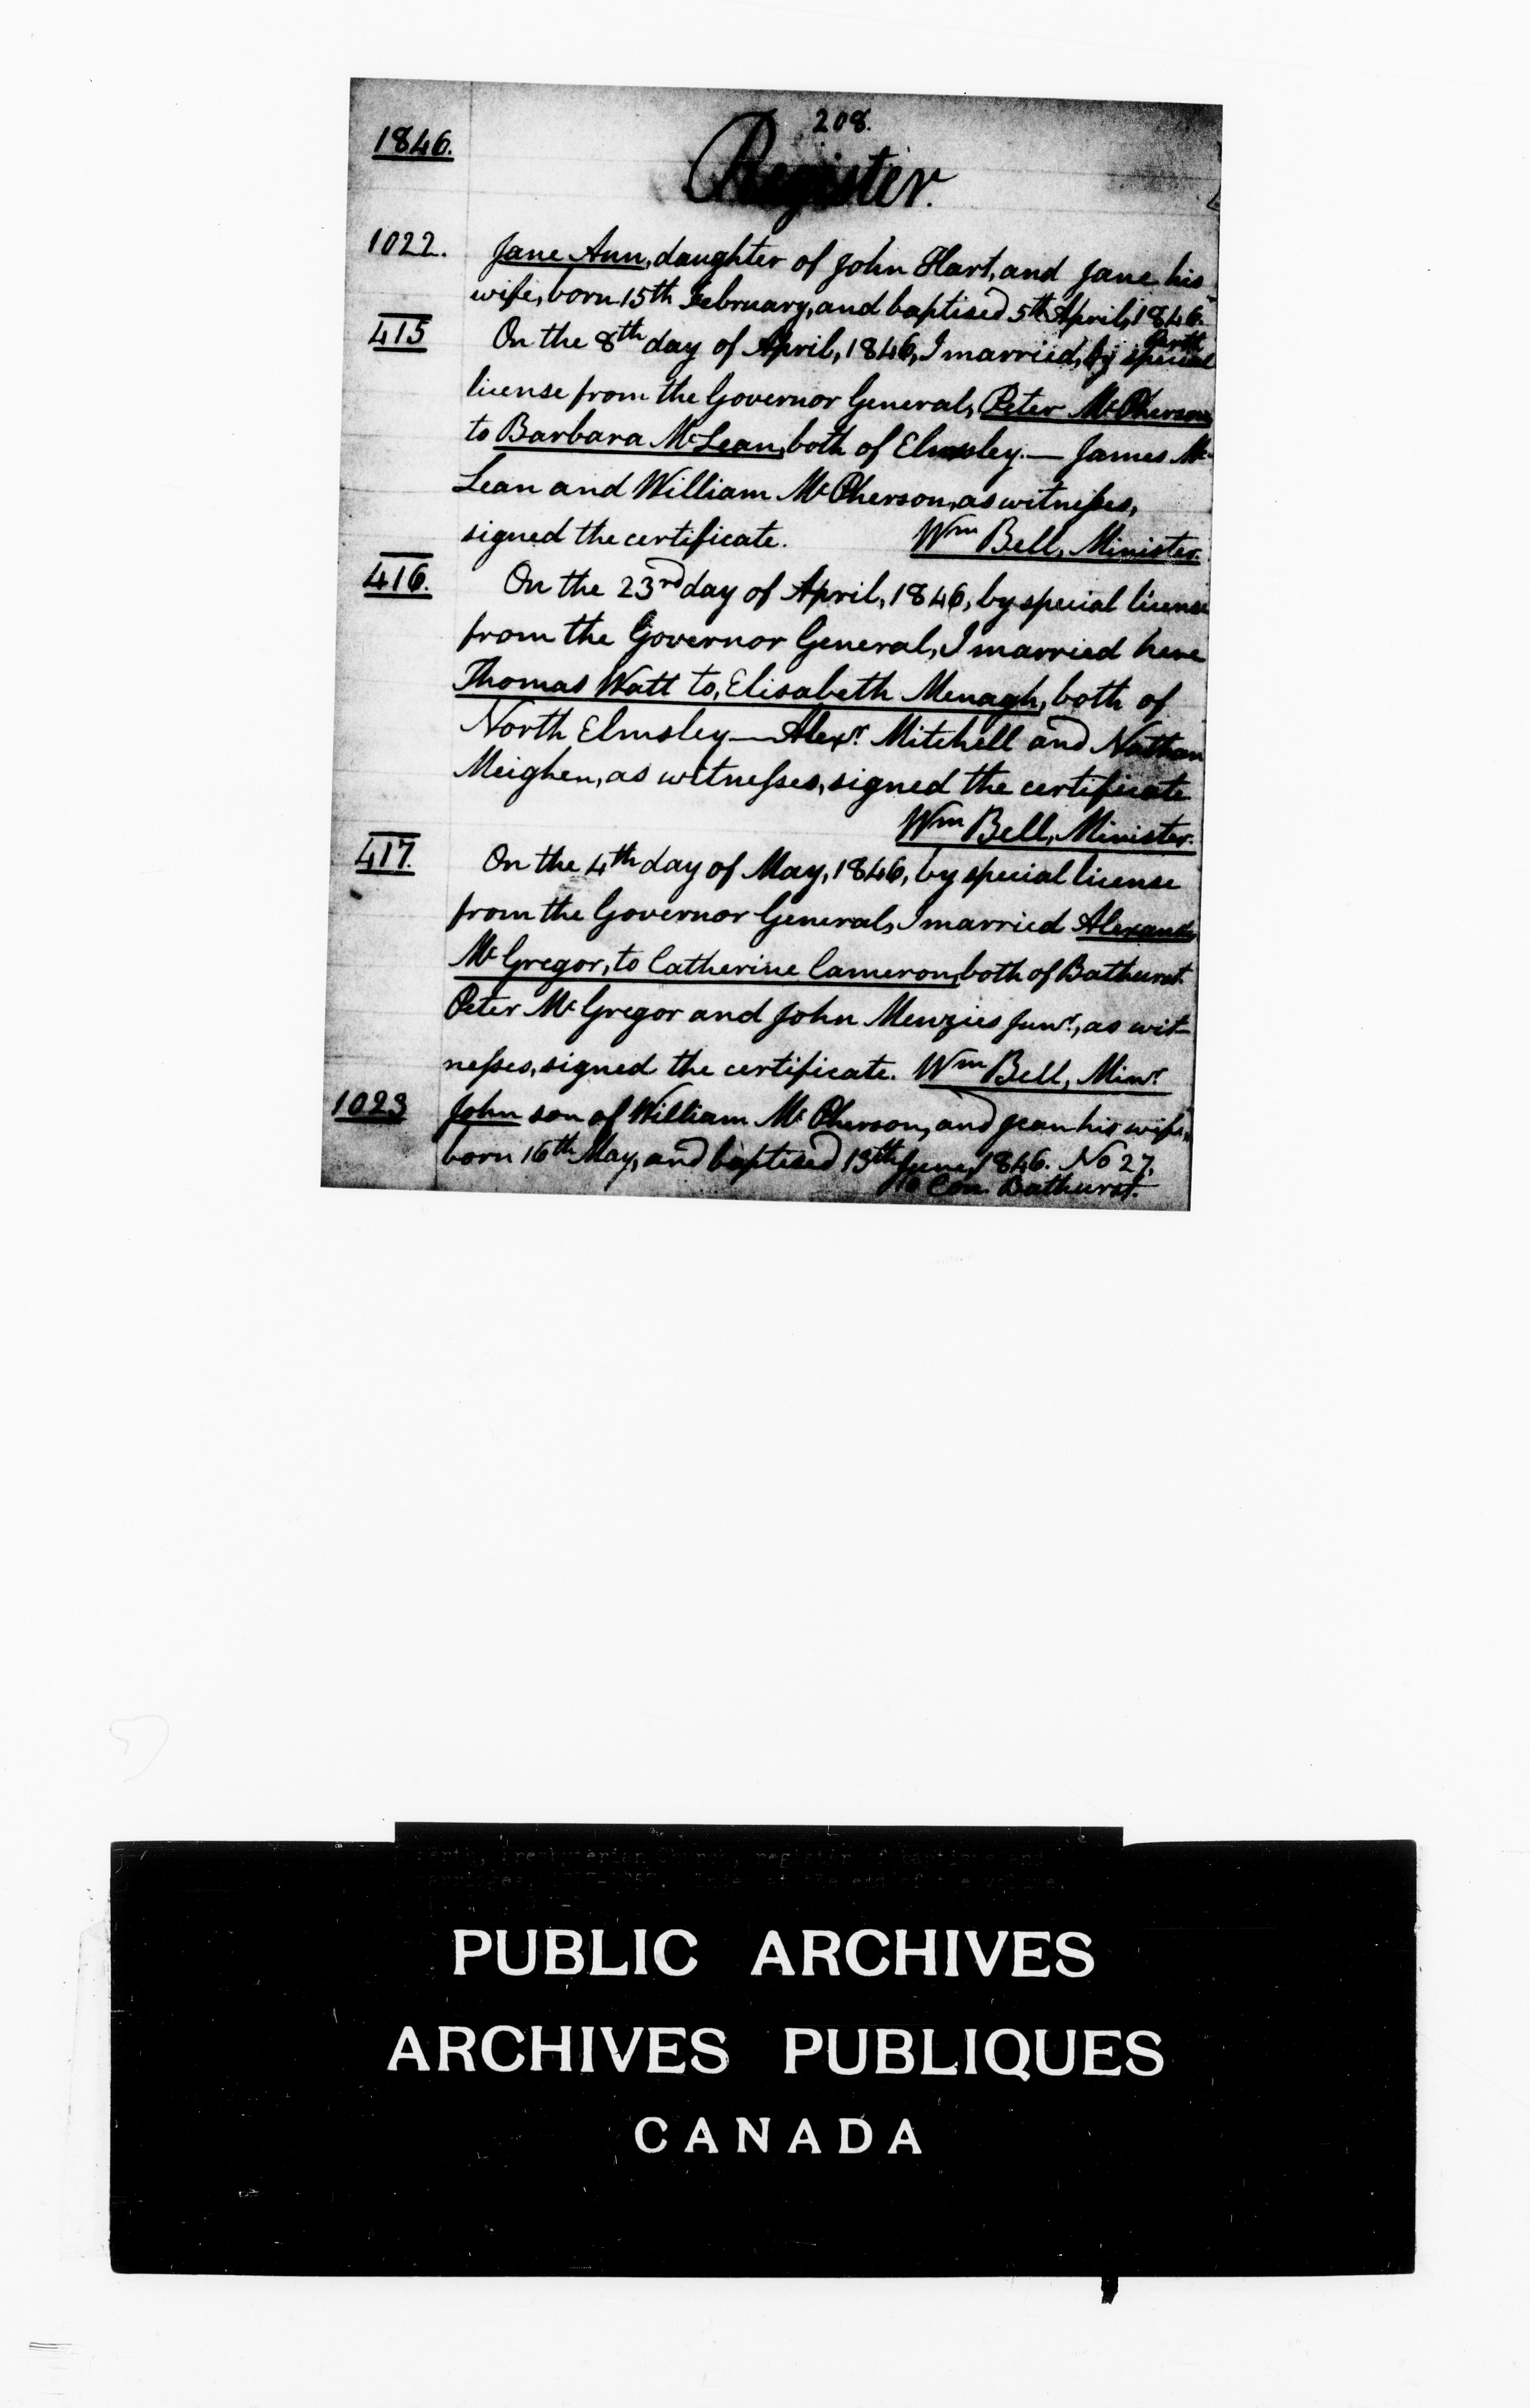 208.
1846.
Register.
1022. Jane Ann, daughter of John Hart, and Jane his
wife, born 15th February, and baptised 5th April, 1846.
Perth
415 On the 8th day of April, 1846, I married, by special
license from the Governor General, Peter McPherson
to Barbara McLean, both of Elmsley. — James Mc
Lean and William McPherson, as witneſses,
signed the certificate. Wm Bell, Minister.
416. On the 23rd day of April, 1846, by special license
from the Governor General, I married here
Thomas Watt to, Elisabeth Menagh, both of
North Elmsley — Alexr. Mitchell and Nathan
Meighen, as witneſses, signed the certificate
Wm Bell, Minister.
417. On the 4th day of May, 1846, by special license
from the Governor General, I married Alexander
McGregor, to Catherine Cameron, both of Bathurst.
Peter McGregor and John Menzies Junr., as wit-
neſses, signed the certificate. Wm Bell, Minr.
1023 John son of William McPherson, and Jean his wife,
born 16th May, and baptised 13th June, 1846. No 27.
10 Con. Bathurst.
Perth, Presbyterian Church, register of baptisms and
marriages, Index at the end of the volume.
PUBLIC ARCHIVES
ARCHIVES PUBLIQUES
CANADA